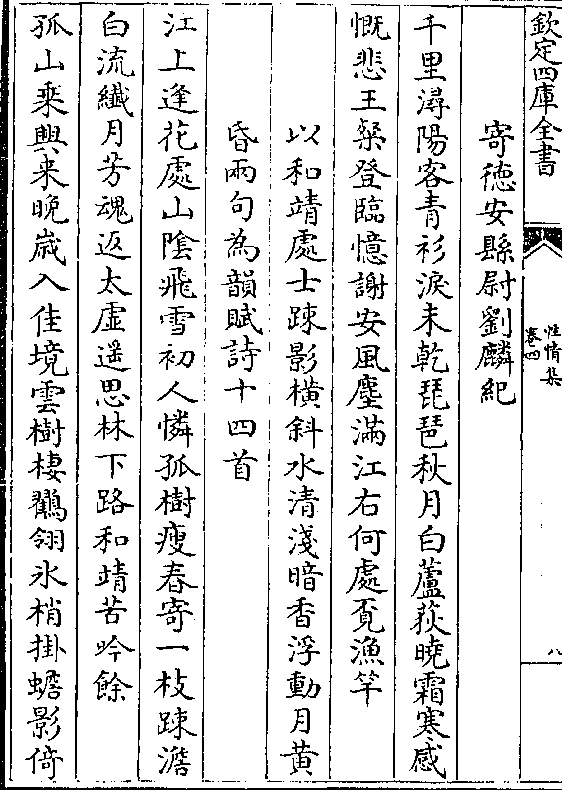 欽定四庫全書
性情集
卷四
八
寄德安縣尉劉麟紀
千里潯陽客青衫淚未乾琵琶秋月白蘆荻曉霜寒感
慨悲王粲登臨憶謝安風塵滿江右何處覓漁竿
以和靖處士踈影橫斜水清淺暗香浮動月黃
昏兩句為韻賦詩十四首
江上逢花處山陰飛雪初人憐孤樹瘦春寄一枝踈澹
白流纖月芳魂返太虛遥思林下路和靖苦吟餘
孤山乘興来晚歲入佳境雲樹棲鸛翎氷梢掛蟾影倚